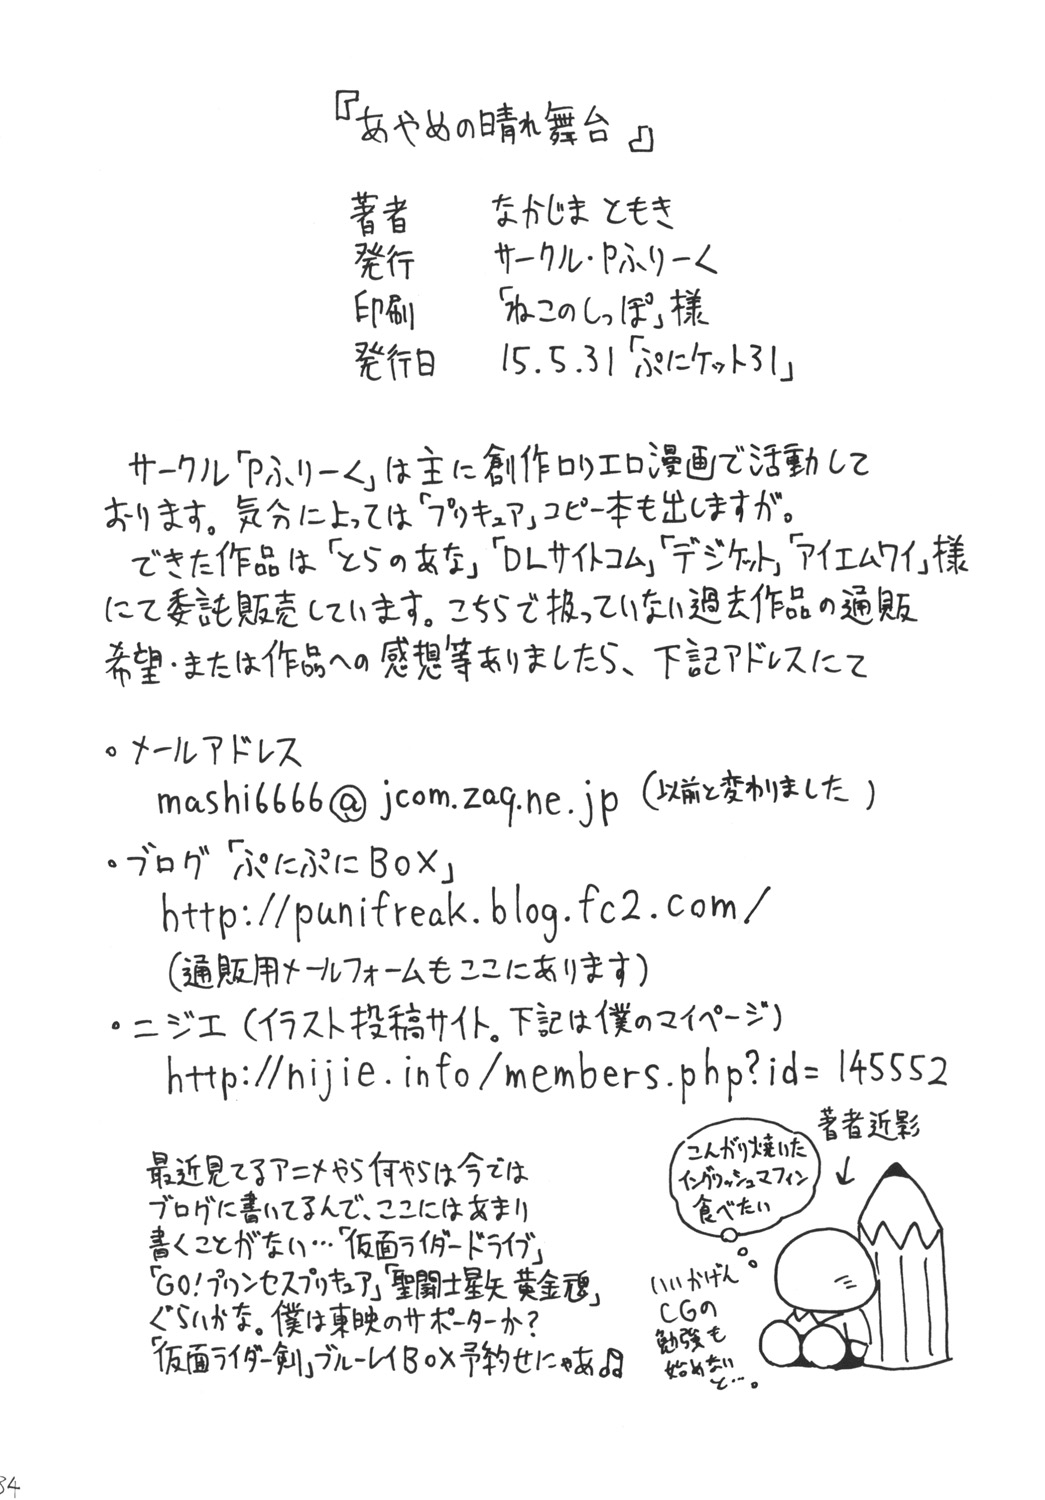 『あやめの晴れ舞台』
著者 なかじま ともき
発行 サークル・Pふりーく
印刷 「ねこのしっぽ」様
発行日 15.5.31「ぷにケット31」
サークル「Pふりーく」は主に創作ロリエロ漫画で活動して
おります。気分によっては「プリキュア」コピー本も出しますが。
できた作品は「とらのあな」「DLサイトコム」「デジケット」「アイエムワイ」様
にて委託販売しています。こちらで扱っていない過去作品の通販
希望・または作品への感想等ありましたら、下記アドレスにて
・メールアドレス
mashi6666@jcom.zaq.ne.jp (以前と変わりました)
・ブログ「ぷにぷにBOX」
http://punifreak.blog.fc2.com/
(通販用メールフォームもここにあります)
・ニジエ(イラスト投稿サイト。下記は僕のマイページ)
http://nijie.info/members.php?id=145552
最近見てるアニメやら何やらは今では
ブログに書いてるんで、ここにはあまり
書くことがない…「仮面ライダードライブ」
「GO!プリンセスプリキュア」「聖闘士星矢 黄金魂」
ぐらいかな。僕は東映のサポーターか?
「仮面ライダー剣」ブルーレイBOX予約せにゃあ♫
著者近影
↓
こんがり焼いた
イングリッシュマフィン
食べたい
いいかげん
CGの
勉強も
始めない
と…。
34